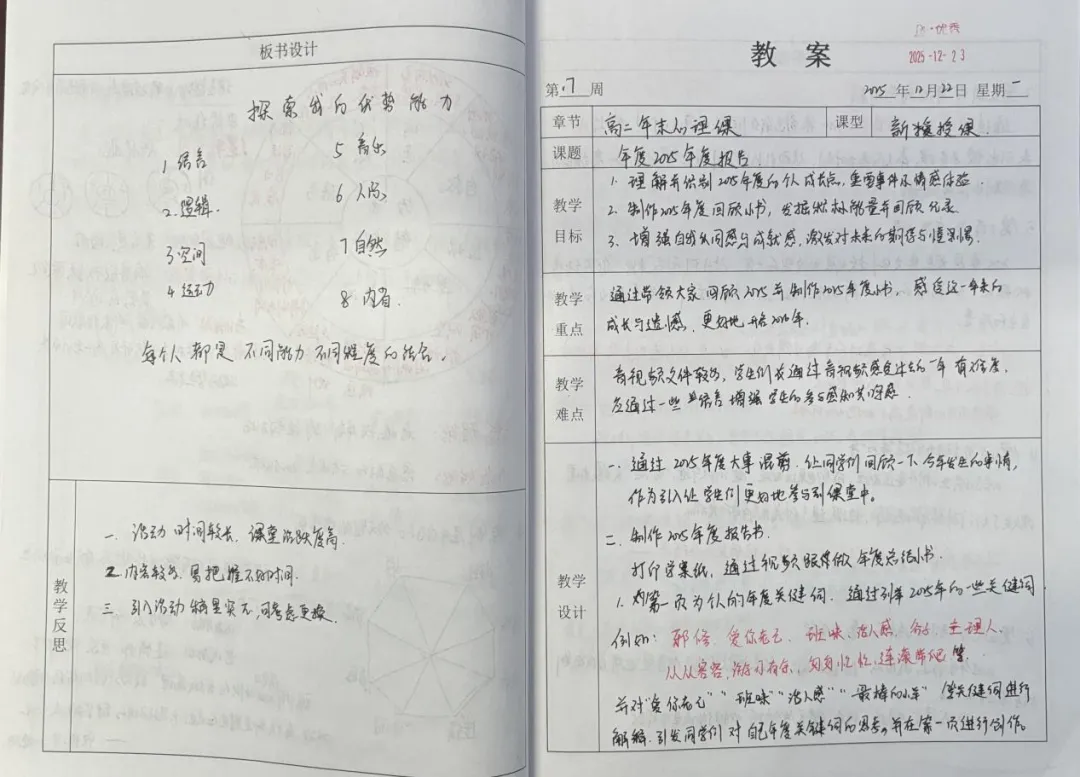 板书设计
探索我的优势能力
1 语言
2. 逻辑.
3 空间
4 运动
5 音乐
6 人际
7 自然
8 内省.
每个人都是不同能力不同程度的结合.
教学反思
一. 活动时间较长. 课堂活跃度高.
2. 内容较多. 易把握不好时间.
三. 引入活动 可考虑更换.
优秀
2025-12-23
教 案
第17周
2025年12月22日 星期一
章节
高二年末心理课
课型
新授课.
课题
年度2025年度报告
教学目标
1. 理解并识别2025年度的个人成长点, 重要事件及情感体验
2. 制作2025年度回顾小书, 发掘 能量并回顾
3. 增强自我认同感与成就感, 激发对未来的期待与
教学重点
通过带领大家回顾2025并制作2025年度小书, 感受这一年来的
成长与遗憾, 更好地开启2026年.
教学难点
音视频文件较多, 学生们其通过音视频感受过去的一年有难度.
应通过一些 语言增强学生的参与感和共鸣感.
教学设计
一. 通过2025年度大事混剪. 让同学们回顾一下今年发生的事情,
作为引入让学生们更好地参与到课堂中.
二. 制作2025年度报告书.
打印 纸, 通过视频跟着做年度总结小书.
1. 第一页为个人的年度关键词. 通过列举2025年的一些关键词
例如: 那 爱你老己、班味、活人感、 主理人
从从容容, 游刃有余, 匆匆忙忙, 连滚带爬等.
并对“爱你老己”“班味”“活人感”“ ”等关键词进行
解释. 引发同学们对自己年度关键词的思考, 并在第一页进行创作.